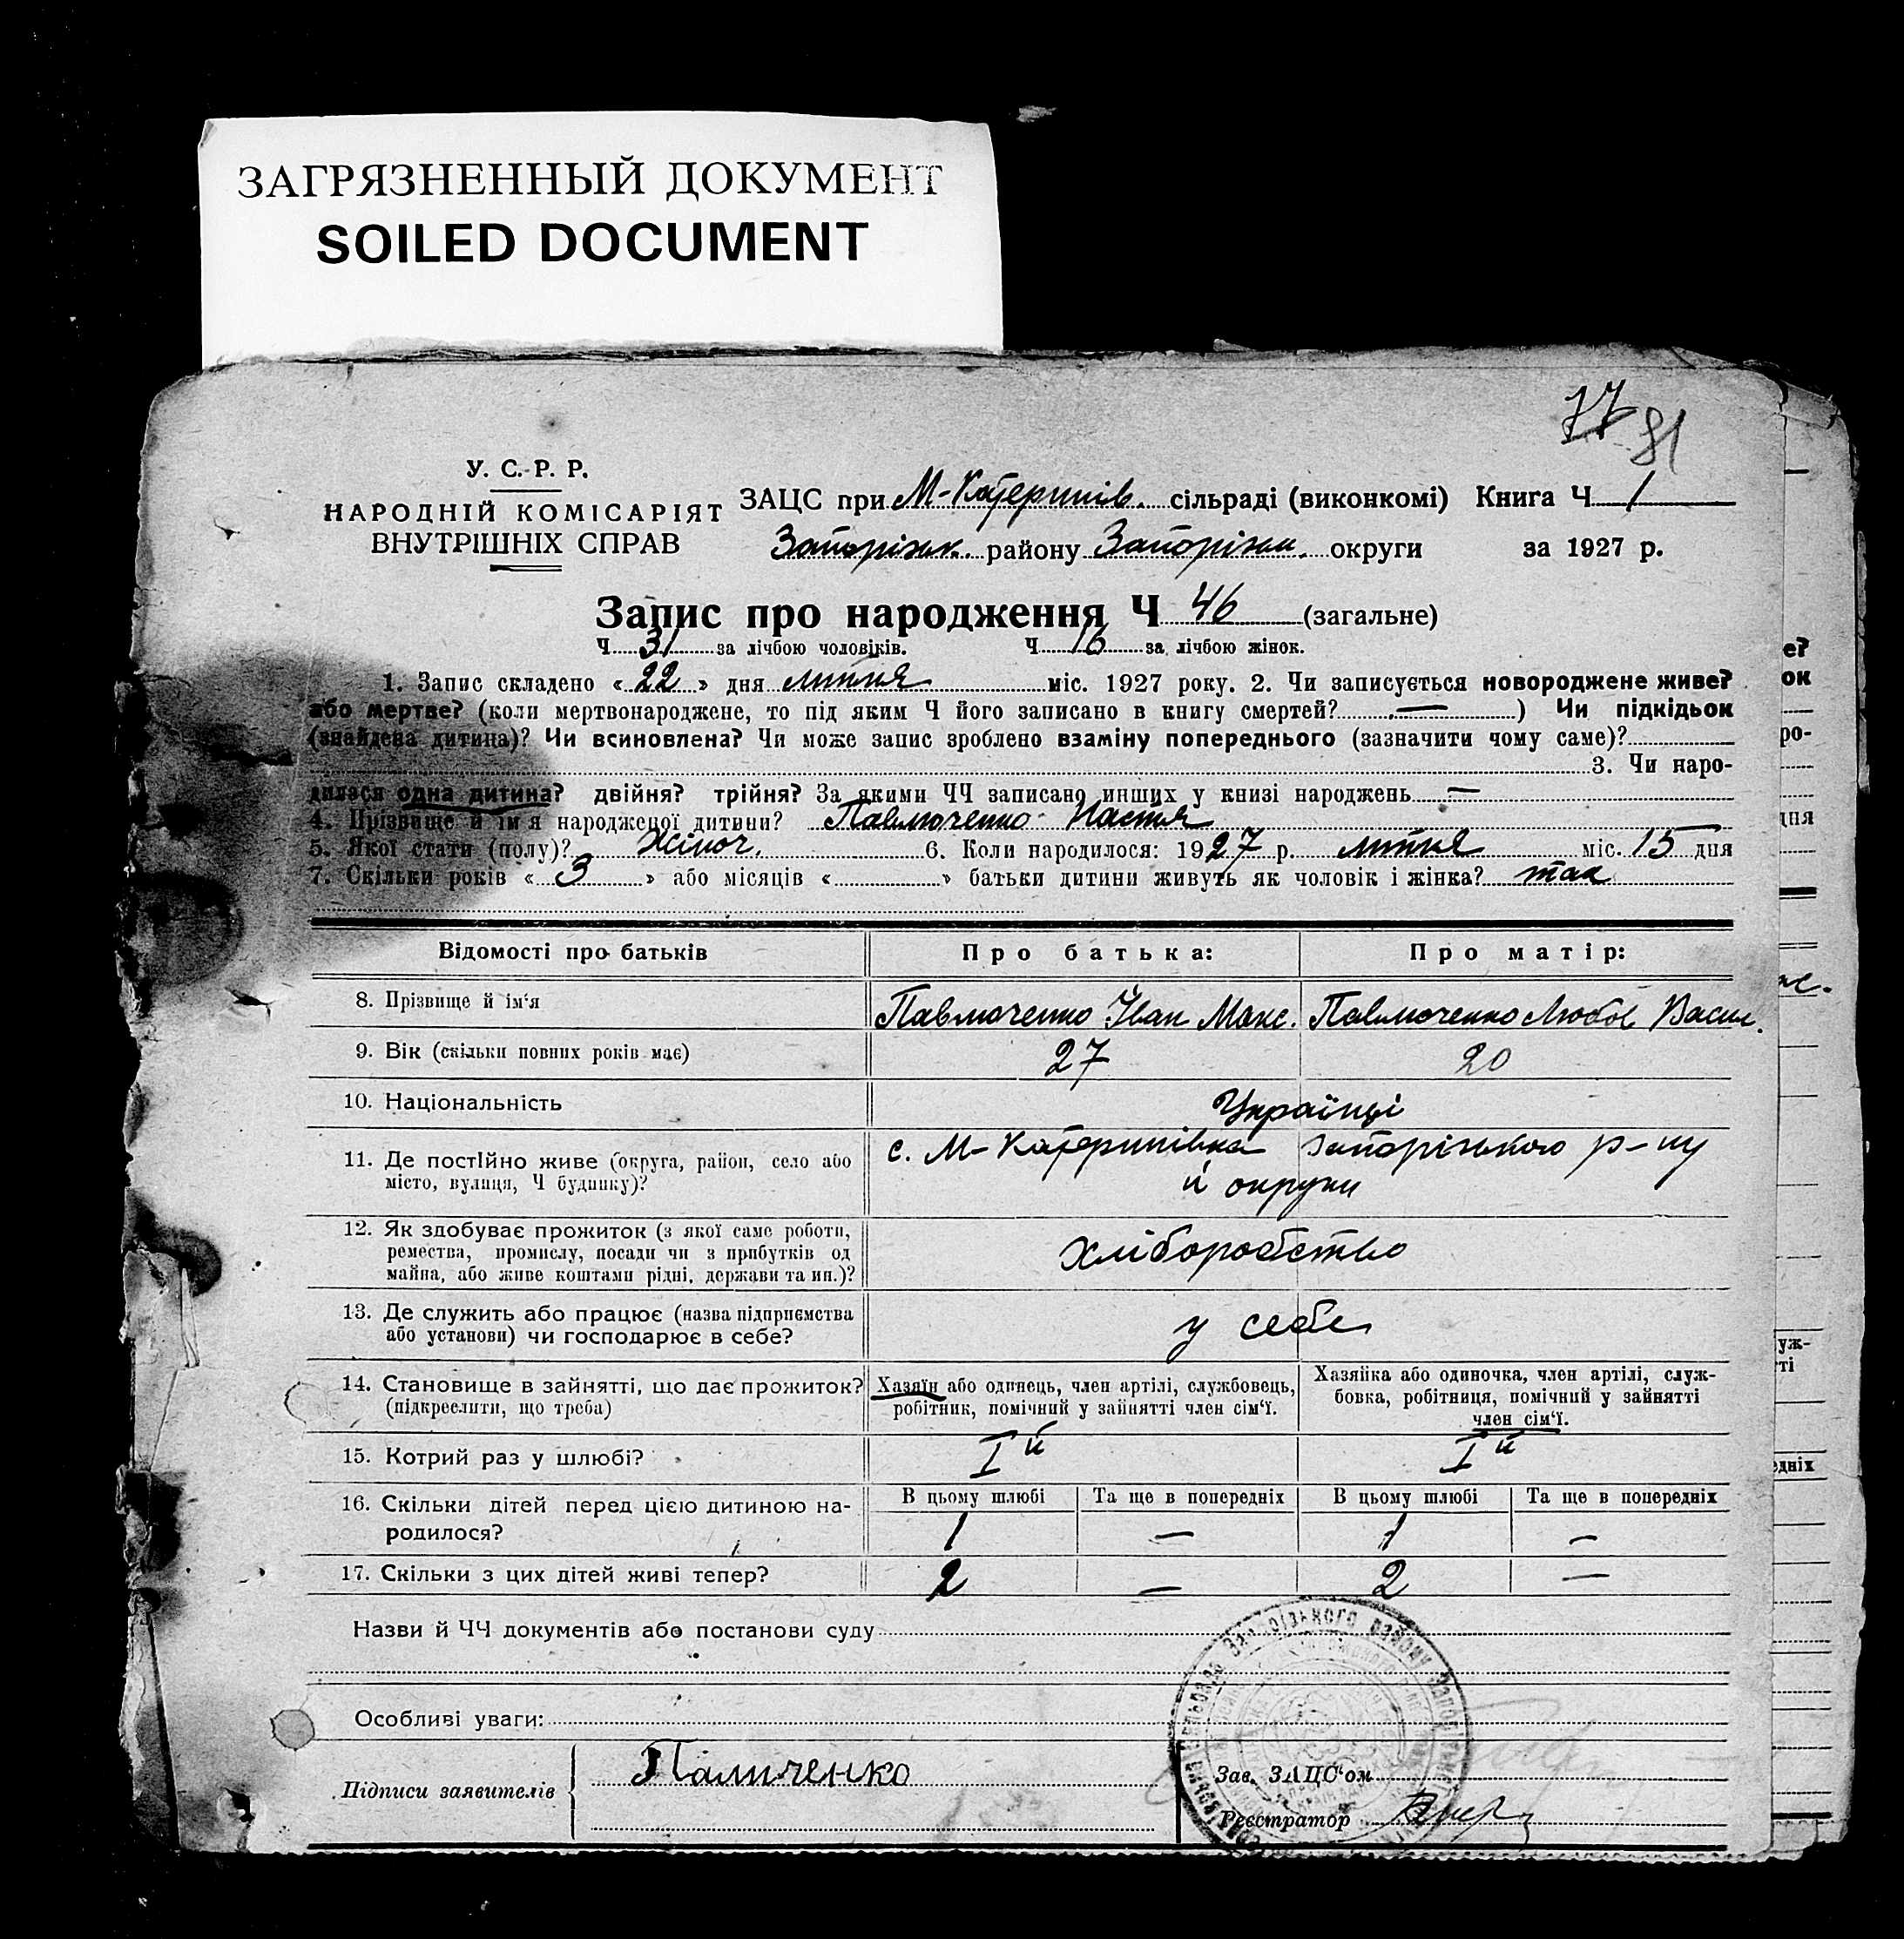 ЗАГРЯЗНЕННЫЙ ДОКУМЕНТ
SOILED DOCUMENT
77 81
У. С. Р. Р.
НАРОДНІЙ КОМІСАРІЯТ
ВНУТРІШНІХ СПРАВ
ЗАЦС при М-Катеринів. сільраді (виконкомі) Книга Ч 1
Запорізьк. району Запорізьк. округи за 1927 р.
Запис про народження Ч 46 (загальне)
Ч 31 за лічбою чоловіків. Ч 16 за лічбою жінок.
1. Запис складено «22» дня лютня міс. 1927 року. 2. Чи записується новороджене живе?
або мертве? (коли мертвонароджене, то під яким Ч його записано в книгу смертей? —) Чи підкідьок
(знайдена дитина)? Чи всиновлена? Чи може запис зроблено взаміну попереднього (зазначити чому саме)?
3. Чи наро-
дилася одна дитина? двійня? трійня? За якими ЧЧ записано инших у книзі народжень —
4. Прізвище й ім'я народженої дитини? Павлюченко Настя
5. Якої стати (полу)? Жіноч. 6. Коли народилося: 1927 р. лютня міс. 15 дня
7. Скільки років «3» або місяців « » батьки дитини живуть як чоловік і жінка? так
Відомості про батьків Про батька: Про матір:
8. Прізвище й ім'я Павлюченко Іван Макс. Павлюченко Любов Васил.
9. Вік (скільки повних років має) 27 20
10. Національність Українці
11. Де постійно живе (округа, район, село або
місто, вулиця, Ч будинку)?
с. М-Катеринівка Запорізького р-ну
й округи
12. Як здобуває прожиток (з якої саме роботи,
ремества, промислу, посади чи з прибутків од
майна, або живе коштами рідні, держави та ин.)?
хліборобство
13. Де служить або працює (назва підприємства
або установи) чи господарює в себе?
у себе
14. Становище в зайнятті, що дає прожиток?
(підкреслити, що треба)
Хазяїн або одинець, член артілі, службовець,
робітник, помічний у зайнятті член сім'ї.
Хазяйка або одиночка, член артілі, служ-
бовка, робітниця, помічний у зайнятті
член сім'ї.
15. Котрий раз у шлюбі? Iй Iй
16. Скільки дітей перед цією дитиною на-
родилося?
В цьому шлюбі Та ще в попередніх В цьому шлюбі Та ще в попередніх
1 — 1 —
17. Скільки з цих дітей живі тепер? 2 — 2 —
Назви й ЧЧ документів або постанови суду
Особливі уваги:
Підписи заявителів
Зав. ЗАЦС'ом
Реєстратор